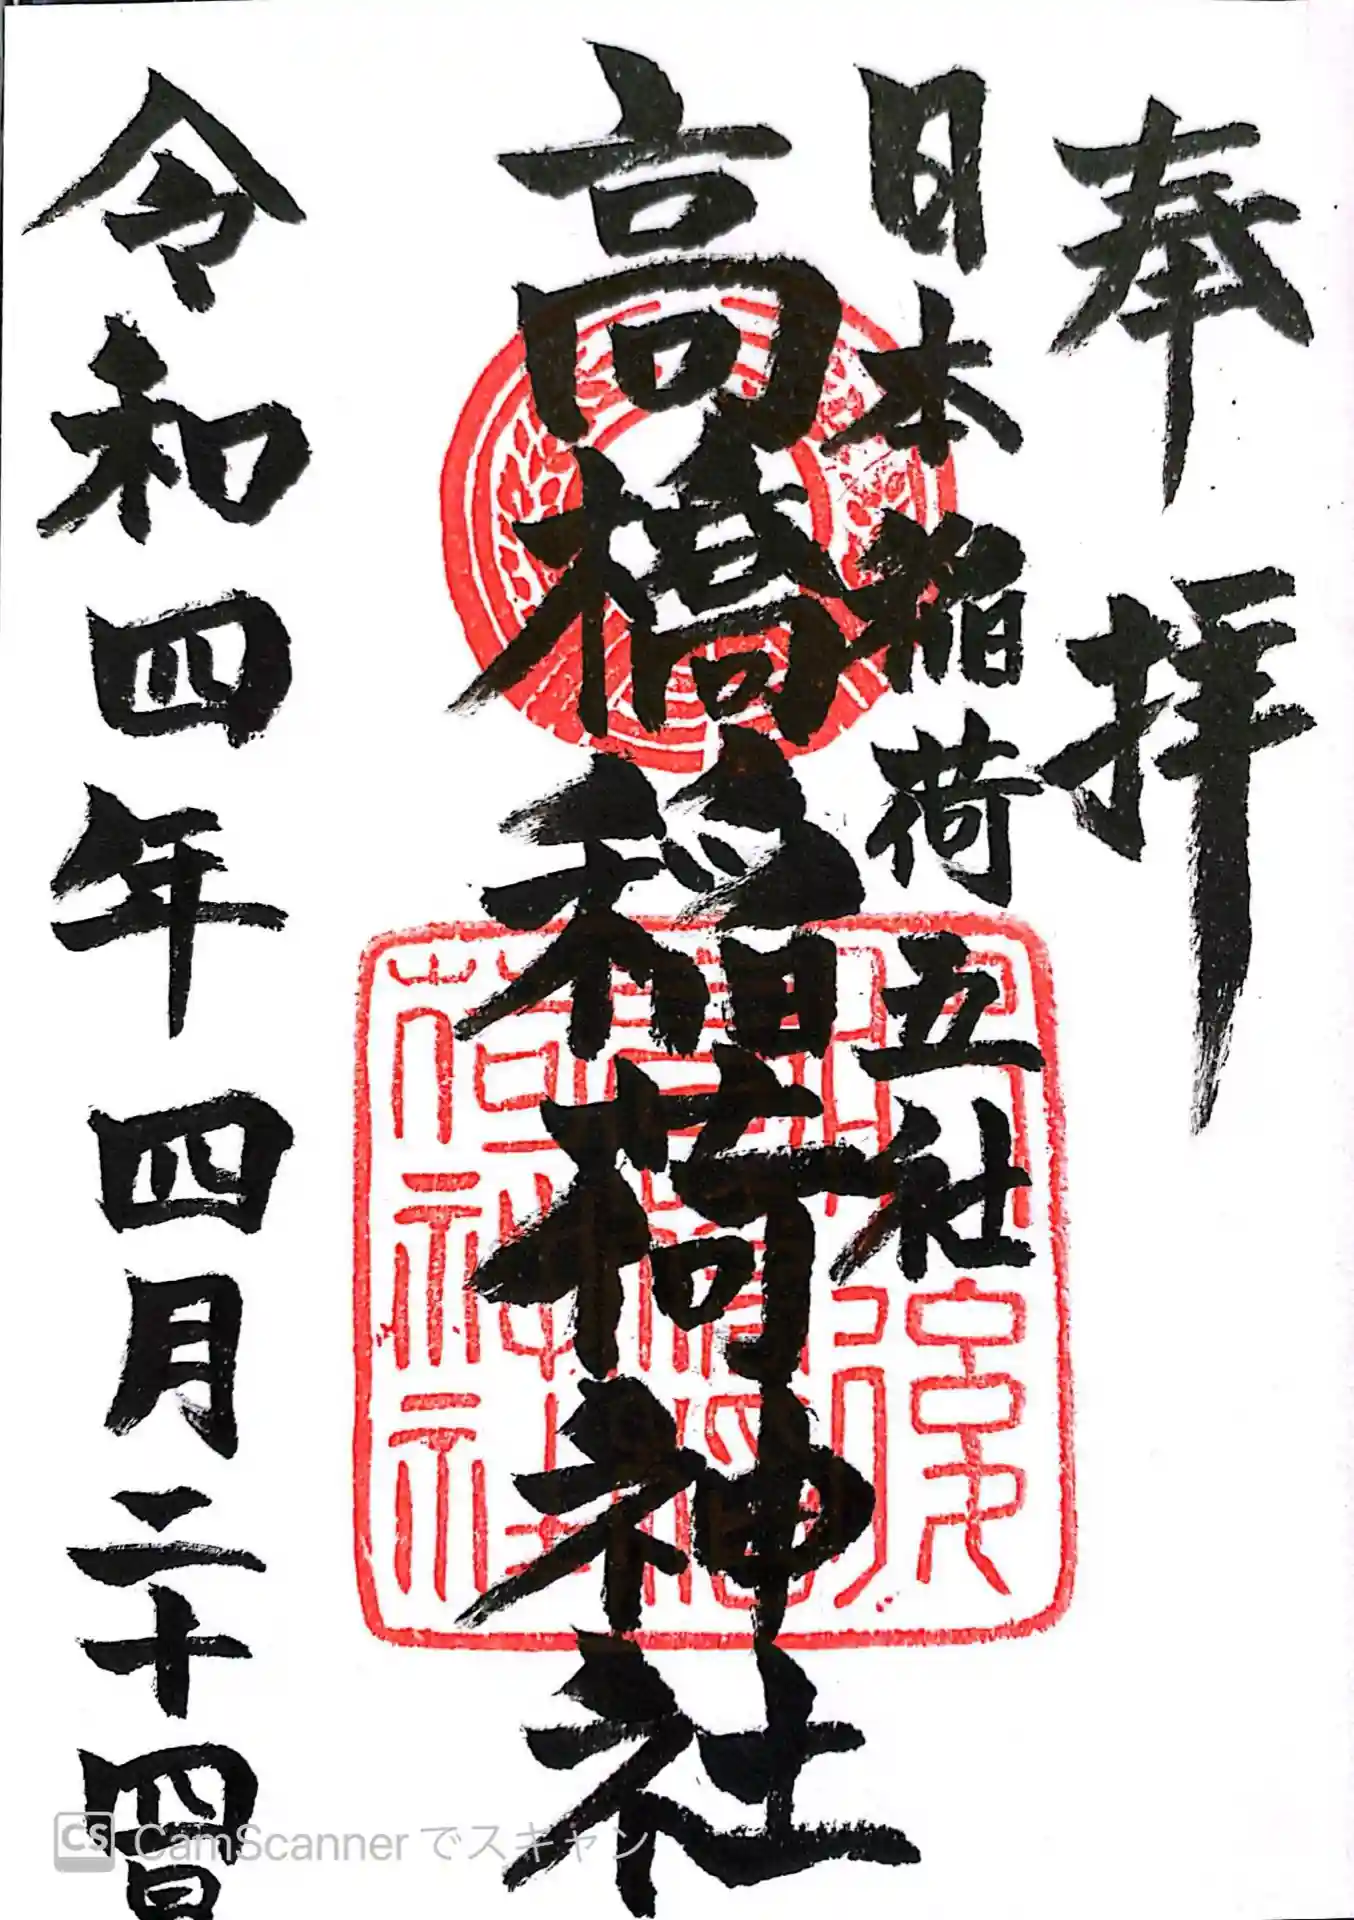 奉拝
日本稲荷五社
高橋稲荷神社
令和四年四月二十四日
CS CamScannerでスキャン